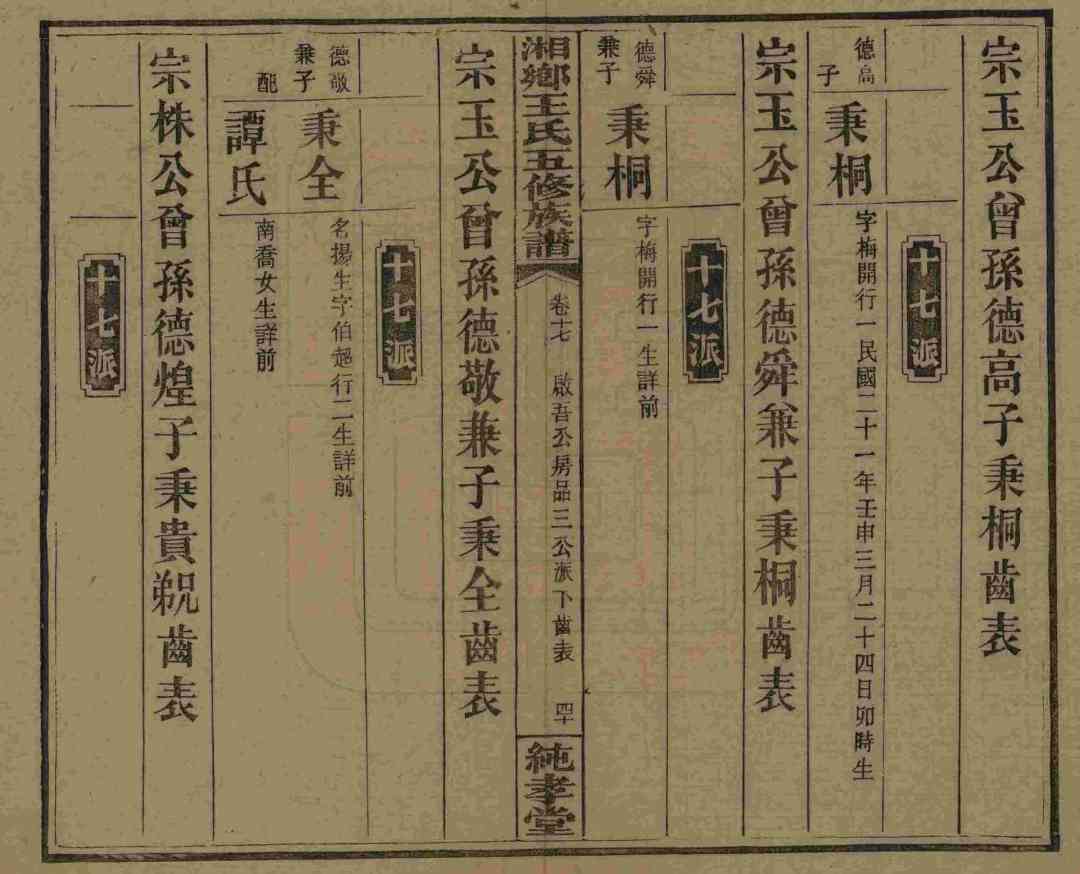 宗玉公曾孫德高子秉桐齒表
十七派
德高子
秉桐
字梅開行一民國二十一年壬申三月二十四日卯時生
宗玉公曾孫德舜兼子秉桐齒表
十七派
德舜兼子
秉桐
字梅開行一生詳前
湘鄉王氏五修族譜
卷十七
啟吾公房品三公派下齒表
四十
純孝堂
宗玉公曾孫德敬兼子秉全齒表
十七派
德敬兼子
秉全
名揚生字伯超行二生詳前
配
譚氏
南喬女生詳前
宗株公曾孫德煌子秉貴繼齒表
十七派